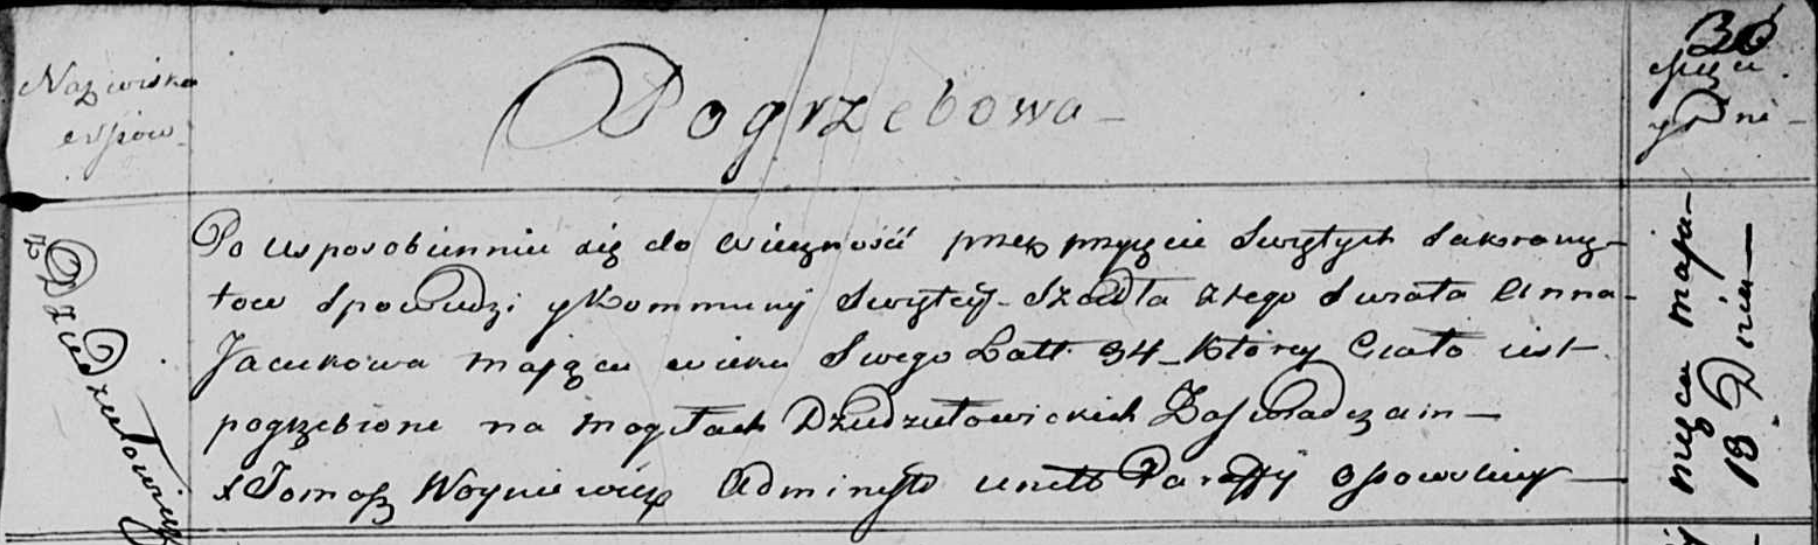 Nazwiska
wsiow
Pogrzebowa
30
Msca
y Dni
w Dziedziłowiczach
Po usposobienniu się do wieczności przez przyięcie Swiętych Sakramę-
tow Spowiedzi y Kommuniy Swiętey Szedła z tego Swiata Anna
Jacukowa maiąca wieku Swego Latt 34 Ktorey Ciało iest
pogrzebione na mogiłach Dziedziłowickich Zaświadczam
X Tomasz Woyniewicz Administ
miesca maja
13 Dnia